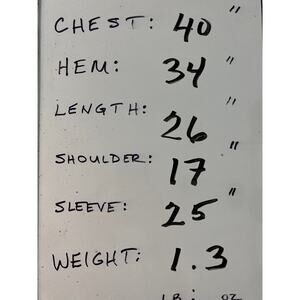 CHEST: 40"
HEM: 34"
LENGTH: 26"
SHOULDER: 17"
SLEEVE: 25"
WEIGHT: 1.3
LB: OZ